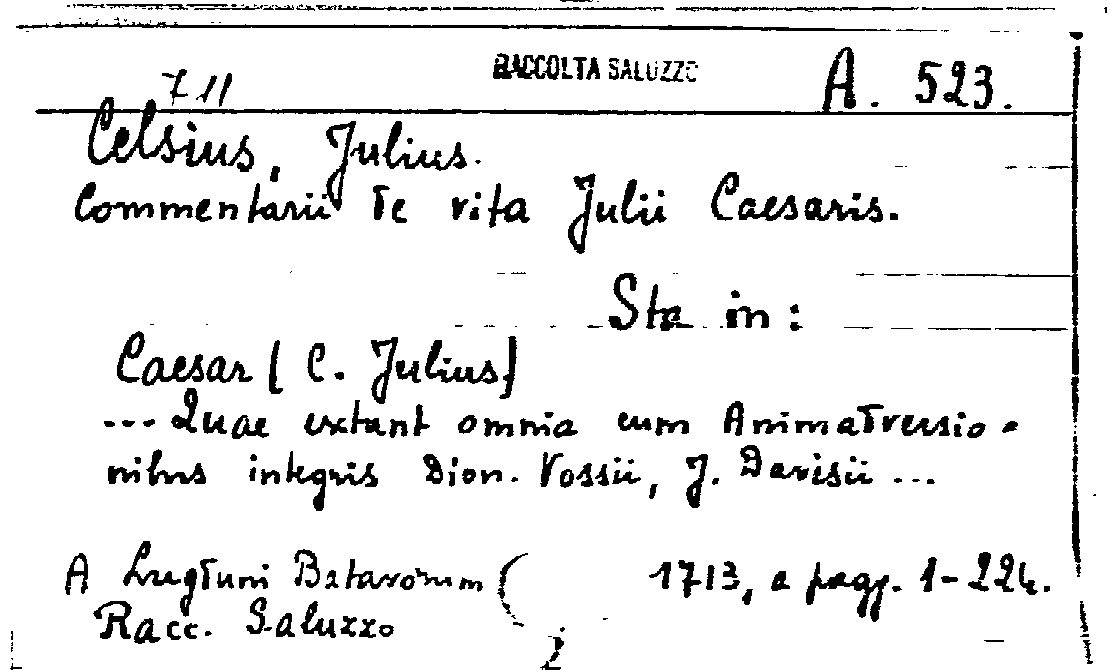 RACCOLTA SALUZZO
A. 523.
711
Celsius, Julius.
Commentarii de vita Julii Caesaris.
Sta in:
Caesar (C. Julius)
... Quae extant omnia cum Animadversio-
nibus integris Dion. Vossii, J. Davisii ...
A Lugduni Batavorum ( 1713, a pagg. 1-224.
Racc. Saluzzo
2